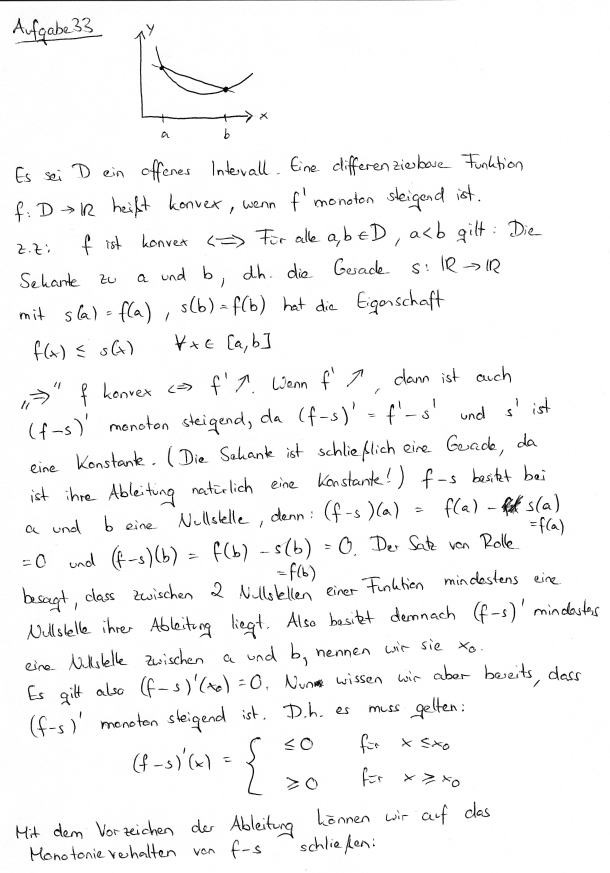 Aufgabe 33
y
x
a b
Es sei D ein offenes Intervall. Eine differenzierbare Funktion
f: D → ℝ heißt konvex, wenn f' monoton steigend ist.
z.z: f ist konvex <=> Für alle a,b ∈ D, a<b gilt: Die
Sekante zu a und b, d.h. die Gerade s: ℝ → ℝ
mit s(a) = f(a), s(b) = f(b) hat die Eigenschaft
f(x) ≤ s(x) ∀ x ∈ [a,b]
„⇒" f konvex <=> f' ↗. Wenn f' ↗, dann ist auch
(f-s)' monoton steigend, da (f-s)' = f' - s' und s' ist
eine Konstante. (Die Sekante ist schließlich eine Gerade, da
ist ihre Ableitung natürlich eine Konstante!) f-s besitzt bei
a und b eine Nullstelle, denn: (f-s)(a) = f(a) - s(a)
=f(a)
=0 und (f-s)(b) = f(b) - s(b) = 0. Der Satz von Rolle
=f(b)
besagt, dass zwischen 2 Nullstellen einer Funktion mindestens eine
Nullstelle ihrer Ableitung liegt. Also besitzt demnach (f-s)' mindestens
eine Nullstelle zwischen a und b, nennen wir sie x₀.
Es gilt also (f-s)'(x₀) = 0. Nun wissen wir aber bereits, dass
(f-s)' monoton steigend ist. D.h. es muss gelten:
(f-s)'(x) = { ≤ 0 für x ≤ x₀
≥ 0 für x ≥ x₀
Mit dem Vorzeichen der Ableitung können wir auf das
Monotonieverhalten von f-s schließen: